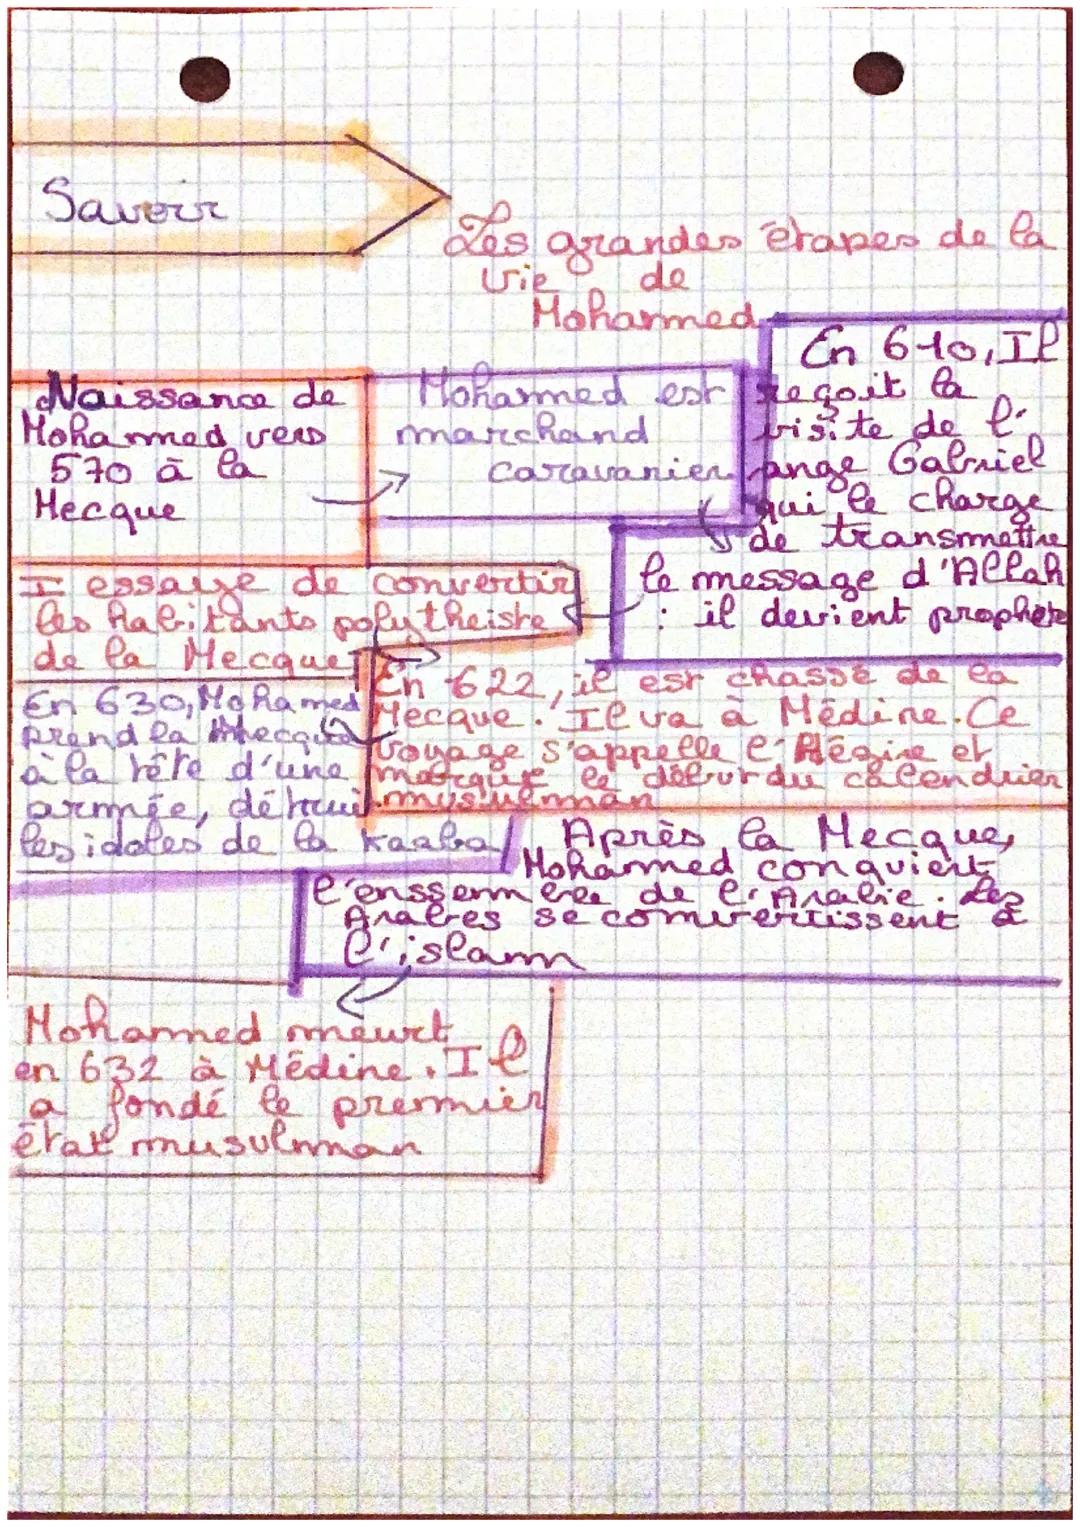 Savoir
Les grandes étapes de la
vie de
Mohammed
Naissance de
Mohammed vers
570 à la
Mecque
Mohammed est
marchand
caravanier
En 610, Il
reçoit la
visite de l'
ange Gabriel
qui le charge
de transmettre
le message d'Allah
: il devient prophète
I essaye de convertir
les habitants polytheiste
de la Mecque
En 622, il est chassé de la
Mecque. Il va à Médine. Ce
voyage s'appelle l'Hégire et
marque le début du calendrier
musulman
En 630, Mohamed
prend la Mecque
à la tête d'une
armée, détruit
les idoles de la Kaaba
Après la Mecque,
Mohammed conquiert
l'enssemble de l'Arabie. Les
Arabes se convertissent à
l'islam
Mohammed meurt
en 632 à Médine. Il
a fondé le premier
état musulman